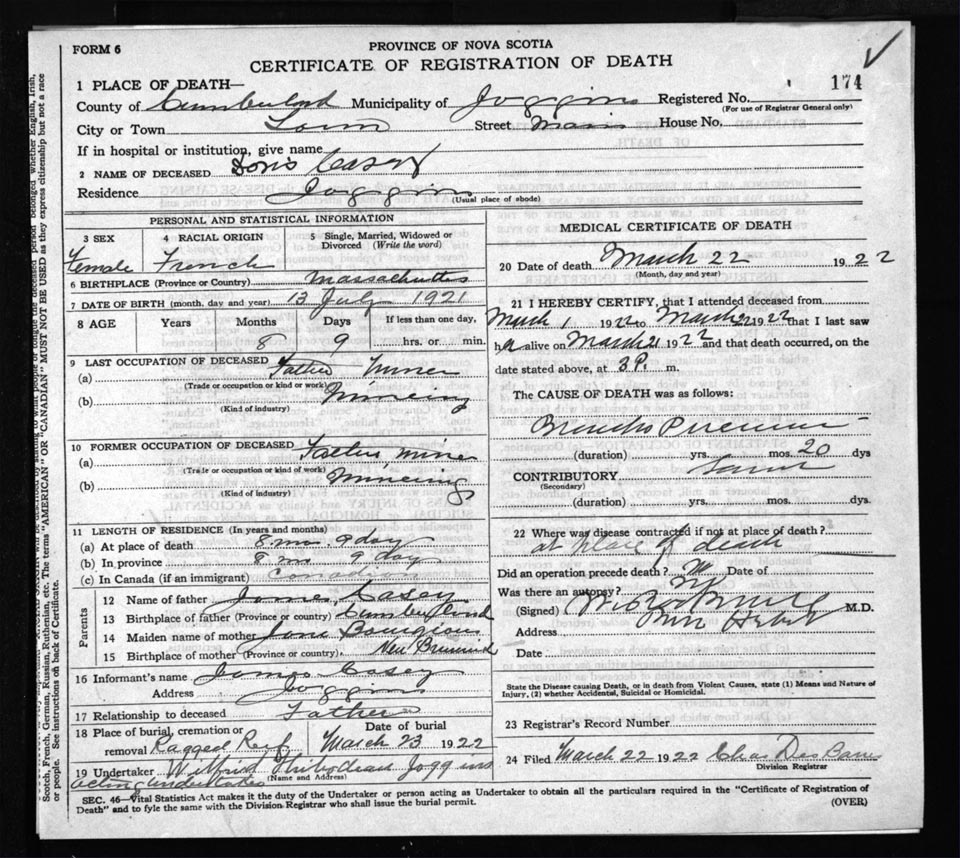 FORM 6
PROVINCE OF NOVA SCOTIA
CERTIFICATE OF REGISTRATION OF DEATH
174
1 PLACE OF DEATH—
County of Cumberland Municipality of Joggins Registered No.
(For use of Registrar General only)
City or Town Town Street Main House No.
If in hospital or institution, give name
2 NAME OF DECEASED Doris Casey
Residence Joggins
(Usual place of abode)
PERSONAL AND STATISTICAL INFORMATION
3 SEX 4 RACIAL ORIGIN 5 Single, Married, Widowed or Divorced (Write the word)
Female French
6 BIRTHPLACE (Province or Country) Massachuttes
7 DATE OF BIRTH (month, day and year) 13 July 1921
8 AGE Years Months Days If less than one day,
8 9 hrs. or min.
9 LAST OCCUPATION OF DECEASED Father Miner
(a)
(Trade or occupation or kind or work)
(b) Mineing
(Kind of industry)
10 FORMER OCCUPATION OF DECEASED Father miner
(a)
(Trade or occupation or kind of work)
(b) Mineing
(Kind of industry)
11 LENGTH OF RESIDENCE (In years and months)
(a) At place of death 8 mo. 9 day
(b) In province 8 m 9 day
(c) In Canada (if an immigrant) Canadian
Parents
12 Name of father James Casey
13 Birthplace of father (Province or country) Cumberland
14 Maiden name of mother Jane
15 Birthplace of mother (Province or country). New
16 Informant's name James Casey
Address Joggins
17 Relationship to deceased Father
18 Place of burial, cremation or removal Ragged Reef Date of burial March 23 1922
19 Undertaker Wilfrid Thibodeau Joggins
(Name and Address)
acting undertaker
MEDICAL CERTIFICATE OF DEATH
20 Date of death March 22 1922
(Month, day and year)
21 I HEREBY CERTIFY, that I attended deceased from
March 1 1922 to March 22 1922 that I last saw
her alive on March 21 1922 and that death occurred, on the
date stated above, at 3 P. m.
The CAUSE OF DEATH was as follows:
Broncho Pneumonia
(duration) yrs. mos. 20 dys
CONTRIBUTORY Same
(Secondary)
(duration) yrs. mos. dys.
22 Where was disease contracted if not at place of death?
at place of death
Did an operation precede death? No Date of
Was there an autopsy? No
(Signed) M.D.
Address River Hebert
Date
State the Disease causing Death, or in death from Violent Causes, state (1) Means and Nature of
Injury, (2) whether Accidental, Suicidal or Homicidal.
23 Registrar's Record Number
24 Filed March 22 1922 Chas DesBarres
Division Registrar
SEC. 46—Vital Statistics Act makes it the duty of the Undertaker or person acting as Undertaker to obtain all the particulars required in the "Certificate of Registration of
Death" and to fyle the same with the Division Registrar who shall issue the burial permit.
(OVER)
Scotch, French, German, Russian, Ruthenian, etc. The terms "AMERICAN" OR "CANADIAN" MUST NOT BE USED as they express citizenship but not a race
or people. See instructions on back of Certificate.